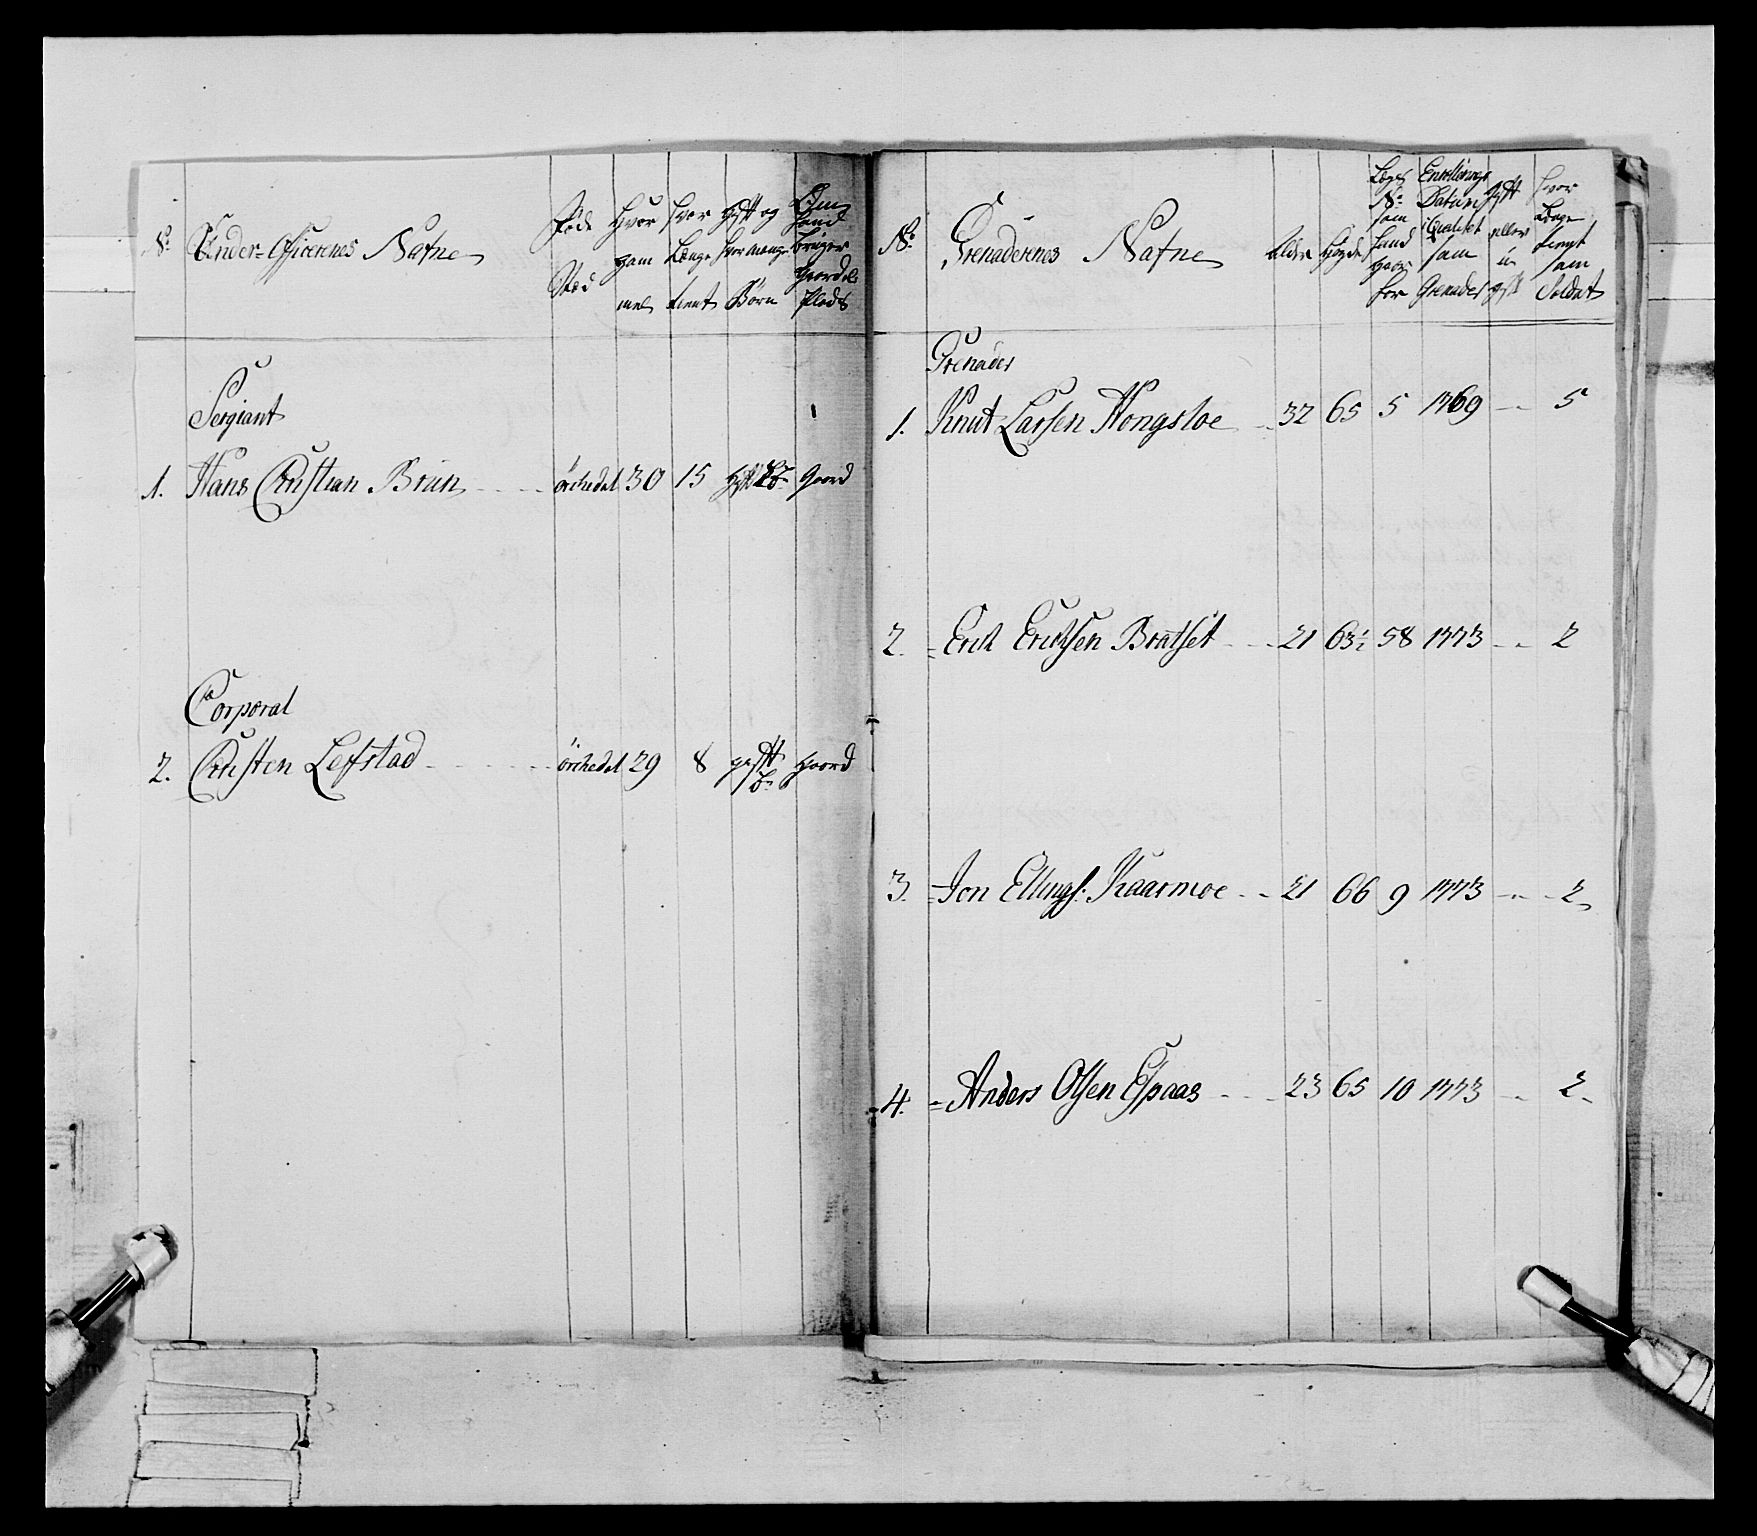 No Under-Officerernes Nafne
Føde Stæd
Hvor gammel
hvor Længe tient
Gift og hvor mange Børn
Om hand bruger Gaard el. Plads
Sergiant
1. Hans Christian Brun örchedal 30 15 Gaard
Corporal
2. Christen Lefstad örchedal 29 8 gift gaard
No Grenaderernes Nafne
Alder
Høyde
Lægs No som hand staar for
Enrollerings Datum i Qualitet som Grenader
gift eller u gift
hvor Længe tient som Soldat
Grenader
1. Knut Larsen Hongsloe 32 65 5 1769 5
2. Erich Erichsen Bratset 21 63½ 58 1773 2
3. Jon Ellings: Kaarmoe 21 66 9 1773 2
4. Anders Olsen Espaas 23 65 10 1773 2